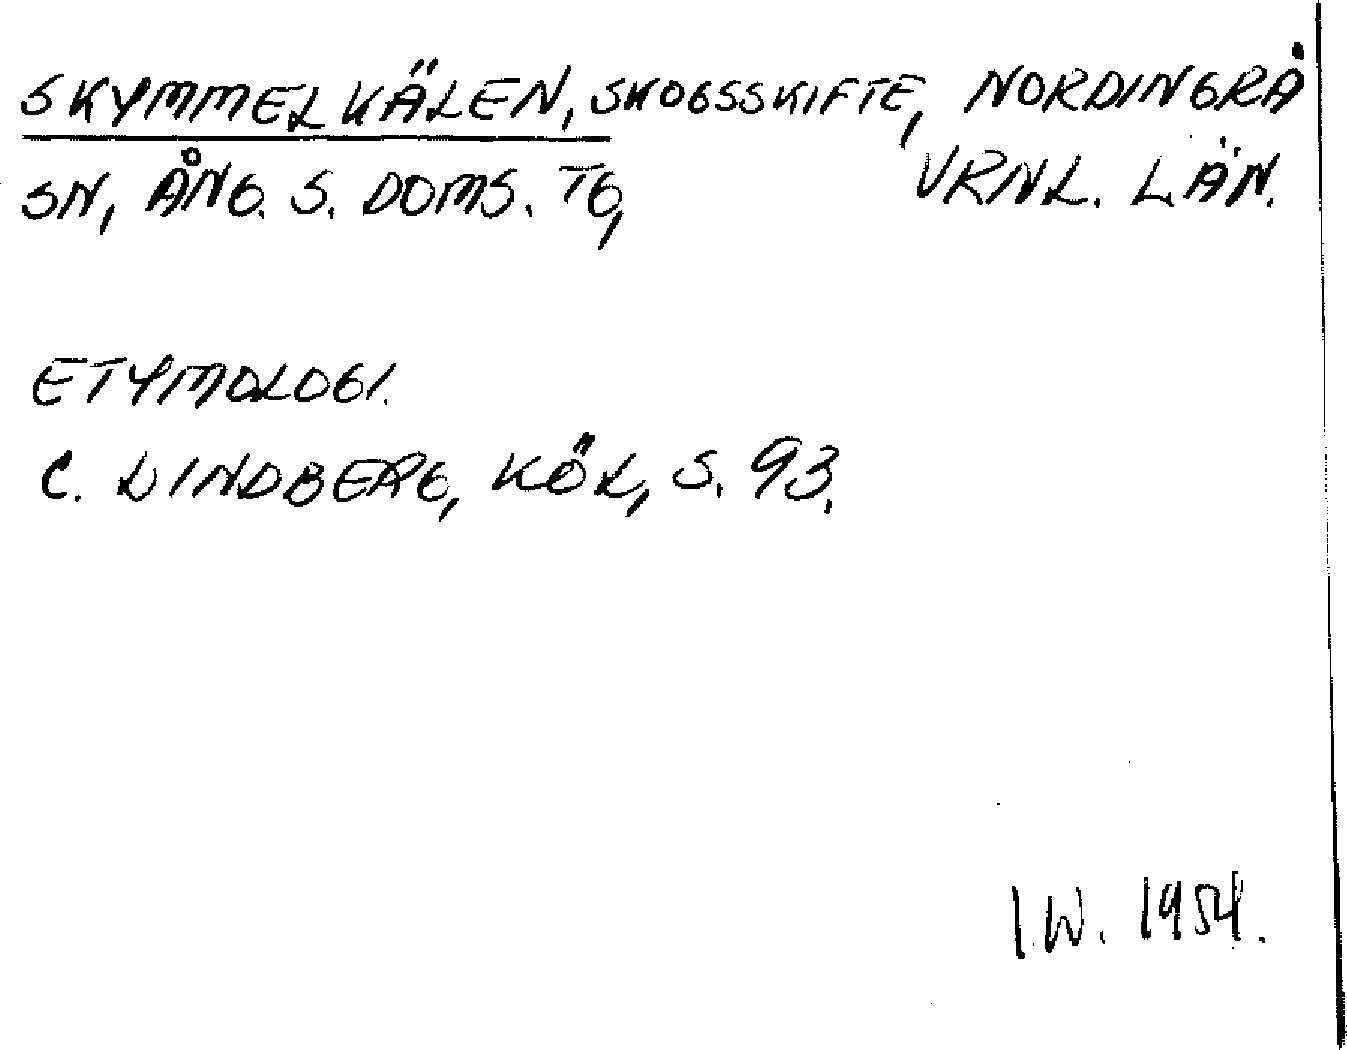 SKYMMELKÄLEN, SKOGSSKIFTE, NORDINGRÅ
SN, ÅNG. S. DOMS. TG, VRNL. LÄN.
ETYMOLOGI.
C. LINDBERG, KÖL, S. 93.
I.W. 1954.